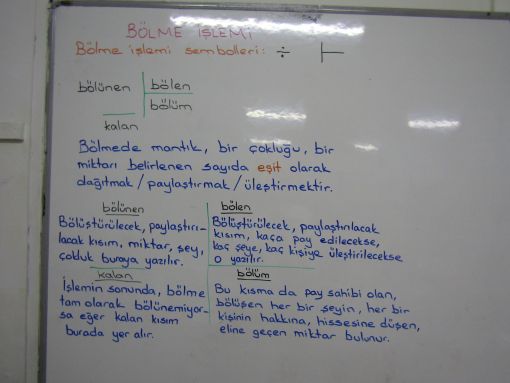 BÖLME İŞLEMİ
Bölme işlemi sembolleri: ÷ ⊢
bölünen bölen
bölüm
kalan
Bölmede mantık, bir çokluğu, bir
miktarı belirlenen sayıda eşit olarak
dağıtmak/paylaştırmak/üleştirmektir.
bölünen
Bölüştürülecek, paylaştırı-
lacak kısım, miktar, şey,
çokluk buraya yazılır.
bölen
Bölüştürülecek, paylaştırılacak
kısım, kaça pay edilecekse,
kaç şeye, kaç kişiye üleştirilecekse
o yazılır.
kalan
İşlemin sonunda, bölme
tam olarak bölünemiyor-
sa eğer kalan kısım
burada yer alır.
bölüm
Bu kısma da pay sahibi olan,
bölüşen her bir şeyin, her bir
kişinin hakkına, hissesine düşen,
eline geçen miktar bulunur.